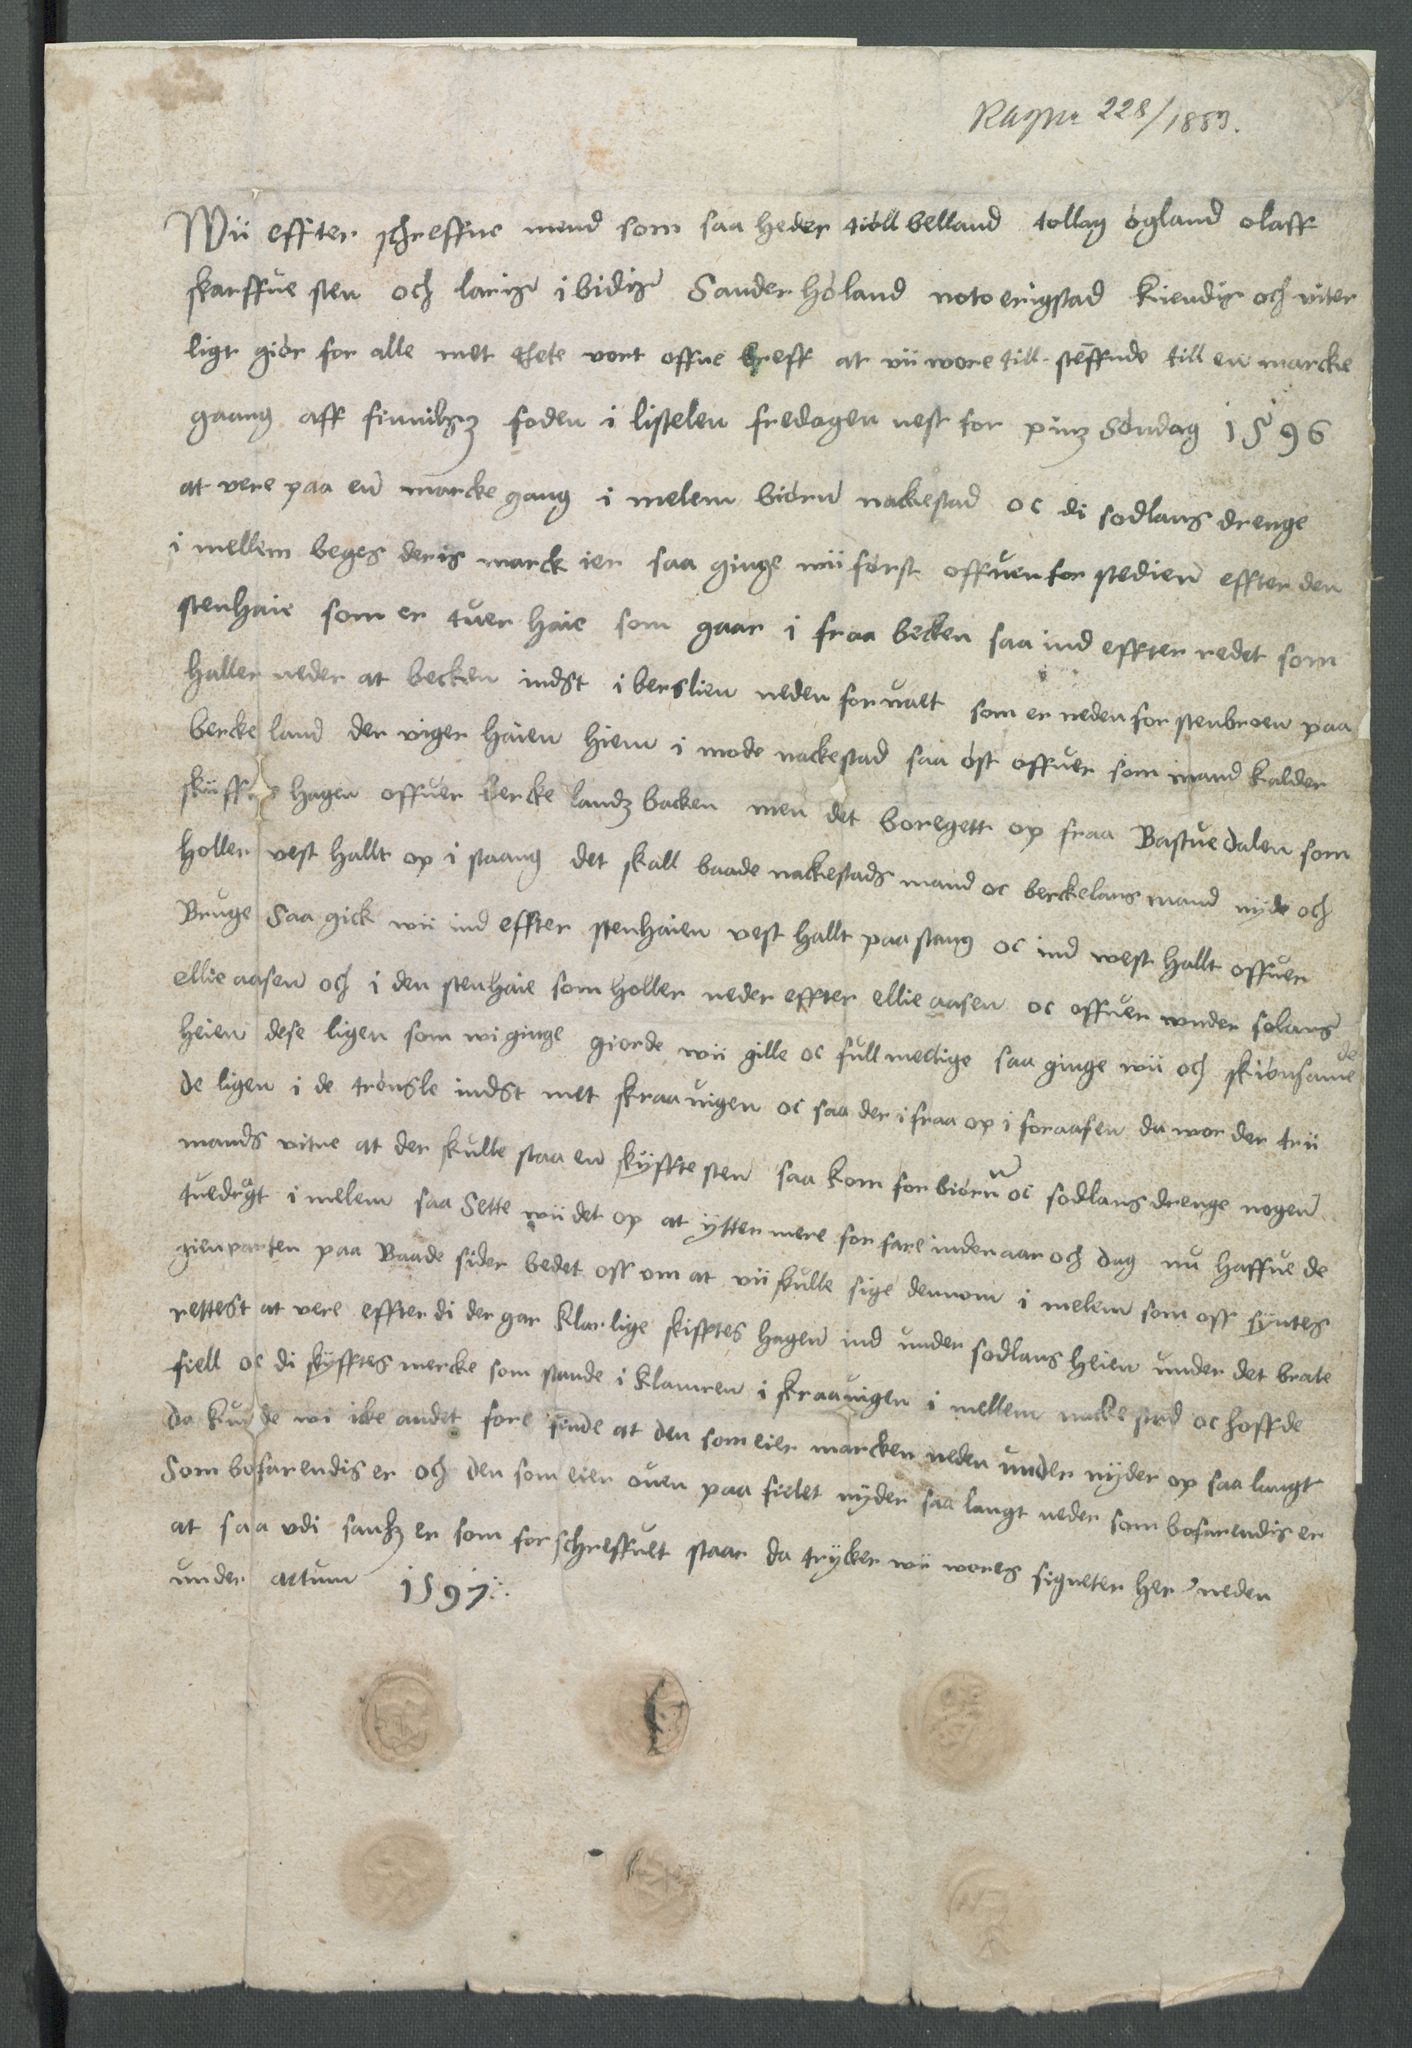 Rappe 228/1889.
Wii effter schreffne mend som saa heder tiøll belland tollag øgland olaff
skarffue sten och lariz ibidiz Sander høland noto erigstad kiendis och viter
ligt giør for alle met thete vort offne breff at vii wore till steffnde till en marcke
gaang aff finnibz foden i listelen fredagen nest for pinz søndag 1596
at vere paa en marcke gang i melem biørn nackestad oc di sodlans drenge
i mellem beges deris marck ier saa ginge wii først offuen for stedien effter den
stenhaie som er tuer haie som gaar i fraa becken saa ind effter redet som
haller neder at becken indst i berslien neden for ualt som er neden for stenbroen paa
bercke land der viger haien hiem i mode nackestad saa øst offuer som mand kalder
skiifftes hagen offuer bercke landz backen men det boregett op fraa Bastue dalen som
holler vest hallt op i staang det skall baade nackestads mand oc berckelans mand nyde och
Bruge Saa gick wii ind effter stenhaien vest hallt paa stang oc ind west hallt offuer
ellie aasen och i den stenhaie som holler neder effter ellie aasen oc offuer wnder solans
heien dese ligen som wi ginge giorde wii gille oc full mectige saa ginge wii och skiønsame de
de ligen i de trønsle indst met skraauigen oc saa der i fraa op i foraasen da wor der trii
mands vitne at der skulle staa en skyffte sten saa kom for biørn oc sodlans drenge nogen
tuedragt i melem saa Sette wii det op at ytter mere for fare inden aar och dag nu haffue de
gienparten paa Baade sider bedet oss om at vii skulle sige dennom i melem som oss syntes
rettest at vere effter di der gar klarlige skifftes hagen ind under sodlans heien under det brate
fiell oc di skyfftes mercke som stande i klamren i skraauigen i mellem nacke stad oc hoffde
da kunde wi icke andet fore finde at den som eier marcken neden under nyder op saa langt
Som bofarendis er och den som eier ouen paa fielet nyder saa langt neder som bofarendis er
at saa vdi sanhz er som for schreffuet staar da trycker wii wores signeter her neden
under actum 1597